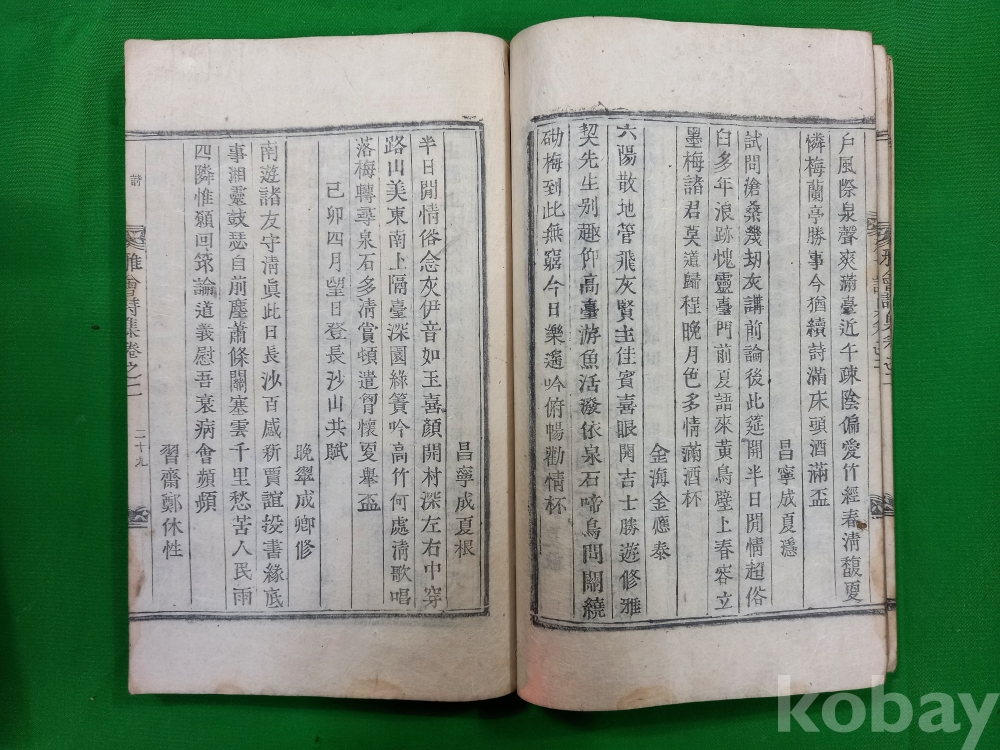 戶風際泉聲爽滿臺近午疎陰偏愛竹經春淸馥夏
憐梅蘭亭勝事今猶續詩滿床頭酒滿盃
昌寧成夏憑
試問滄桑幾劫灰講前論後此筵開半日閒情超俗
臼多年浪跡愧靈臺門前夏語來黃鳥壁上春容立
墨梅諸君莫道歸程晩月色多情滿酒杯
金海金應泰
六陽散地管飛灰賢主佳賓喜眼開吉士勝遊修雅
契先生別趣仰高臺游魚活潑依泉石啼鳥問關繞
砌梅到此無窮今日樂遙吟俯暢勸情杯
昌寧成夏根
半日閒情俗念灰伊音如玉喜顔開村深左右中穿
路山美東南上隔臺深園綠簧吟高竹何處淸歌唱
落梅轉尋泉石多淸賞頓遣胷懷夏舉盃
己卯四月望日登長沙山共賦
晩翠成卿修
南遊諸友守淸眞此日長沙百感新賈誼投書緣底
事湘靈鼓瑟自前塵蕭條關塞雲千里愁苦人民雨
四隣惟願回笻論道義慰吾衰病會頻頻
習齋鄭休性
詩
雅會詩集卷之二
二十九
kobay